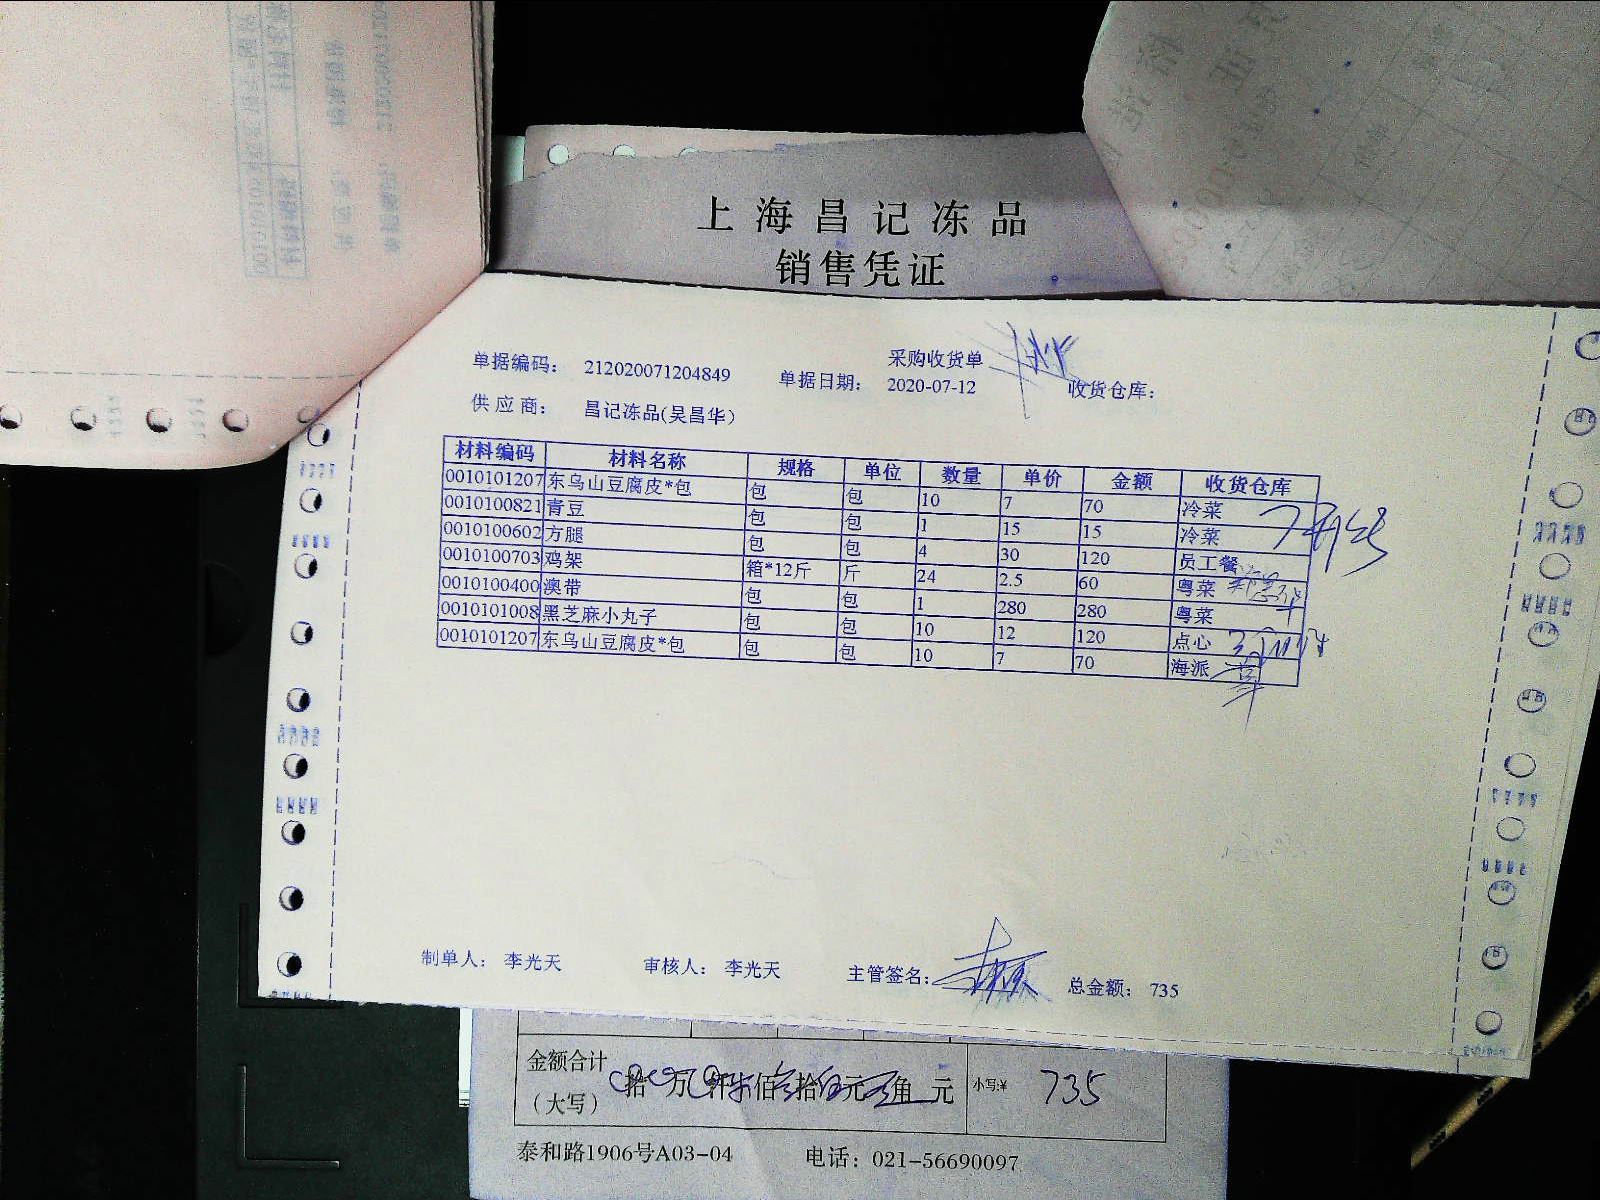 上海昌记冻品
销售凭证
采购收货单
单据编码： 212020071204849 单据日期： 2020-07-12 收货仓库：
供应商： 昌记冻品(吴昌华)
材料编码 材料名称 规格 单位 数量 单价 金额 收货仓库
0010101207 东乌山豆腐皮*包 包 包 10 7 70 冷菜
0010100821 青豆 包 包 1 15 15 冷菜
0010100602 方腿 包 包 4 30 120 员工餐
0010100703 鸡架 箱*12斤 斤 24 2.5 60 粤菜
0010100400 澳带 包 包 1 280 280 粤菜
0010101008 黑芝麻小丸子 包 包 10 12 120 点心
0010101207 东乌山豆腐皮*包 包 包 10 7 70 海派
制单人： 李光天 审核人： 李光天 主管签名： 总金额： 735
金额合计
（大写） 拾 万 仟 佰 拾 元 角 元 小写:¥ 735
泰和路1906号A03-04 电话：021-56690097